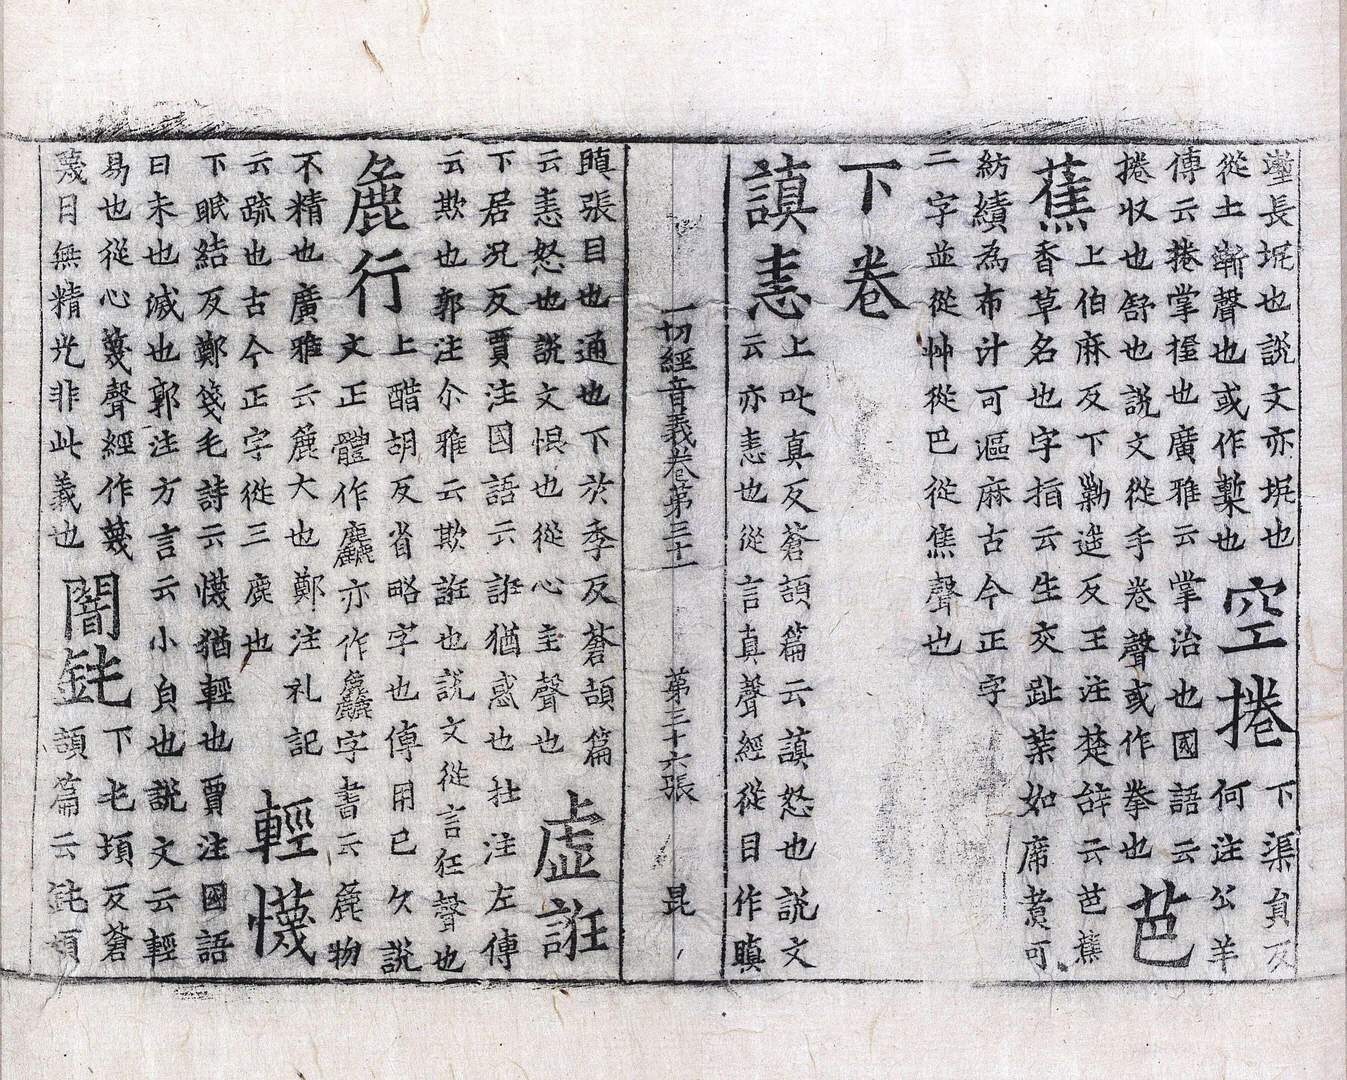 壍長垊也說文亦垊也
從土斬聲也或作槧也空捲下渠負反
何注公羊
傳云捲掌握也廣雅云掌治也國語云
捲収也舒也說文從手卷聲或作拳也芭
蕉上伯麻反下勦遥反王注楚辝云芭蕉
香草名也字指云生交趾葉如席煮可
紡績為布汁可漚麻古今正字
二字並從艸從巴從焦聲也
下卷
謓恚上叱真反蒼頡篇云謓怒也說文
云亦恚也從言真聲經從目作瞋
一切經音義卷第三十一 第三十六張 昆
瞋張目也通也下於季反蒼頡篇
云恚怒也說文恨也從心圭聲也虛誑
下居況反賈注國語云誑猶惑也杜注左傳
云欺也郭注尒雅云欺誑也說文從言狂聲也
麁行上醋胡反省略字也傳用已久說
文正體作麤亦作麁字書云麁物
不精也廣雅云麁大也鄭注礼記
云疏也古今正字從三鹿也輕懱
下眠結反鄭箋毛詩云懱猶輕也賈注國語
曰末也滅也郭注方言云小皃也說文云輕
易也從心蔑聲經作蔑
蔑目無精光非此義也闇鈍下毛頓反蒼
頡篇云鈍頓